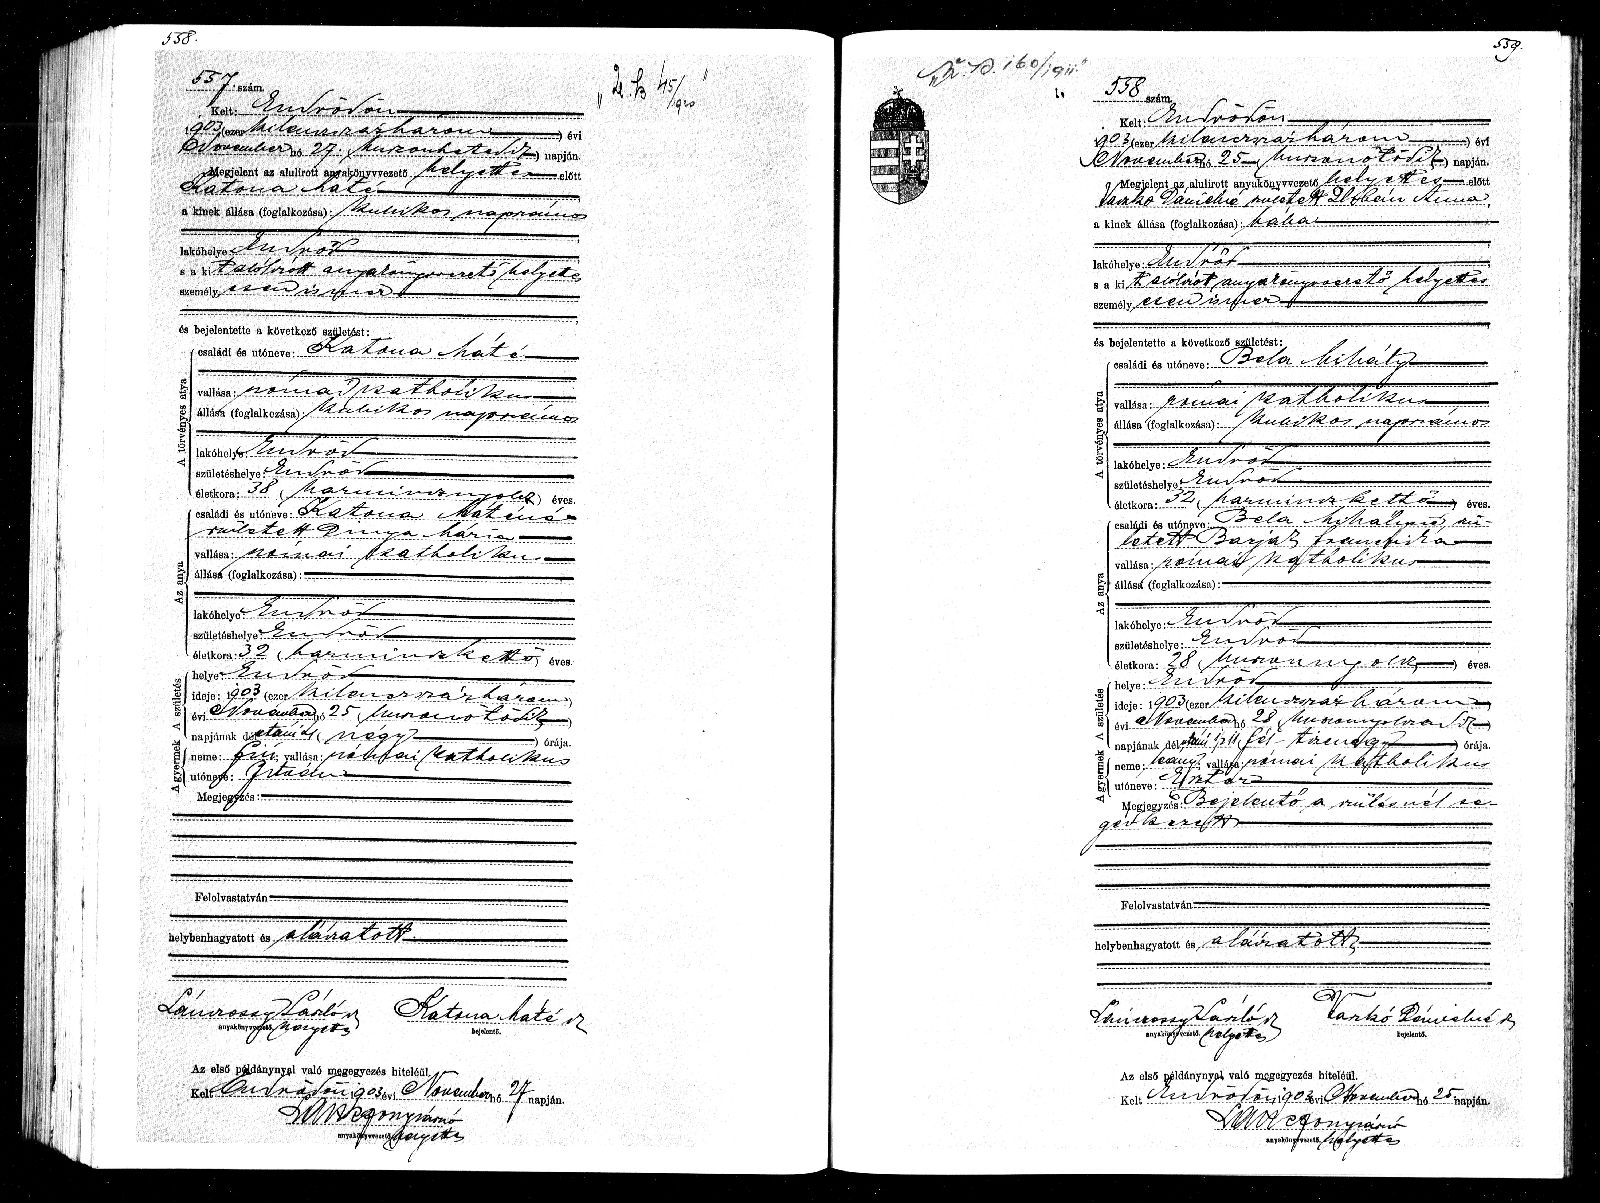 558.
557 szám.
Kelt: Endrődön
1903 (ezer kilenczszázhárom) évi
November hó 27. (huszonhetedik) napján.
Megjelent az alulirott anyakönyvvezető helyettes előtt
Katona Máté
a kinek állása (foglalkozása): kubikos napszámos
lakóhelye: Endrőd
s a kit alólirott anyakönyvvezető helyettes
személyesen ismer
és bejelentette a következő születést:
A törvényes atya
családi és utóneve: Katona Máté
vallása: római katholikus
állása (foglalkozása): kubikos napszámos
lakóhelye: Endrőd
születéshelye: Endrőd
életkora: 38 (harmincznyolcz) éves.
Az anya
családi és utóneve: Katona Máténé
született Dinya Mária
vallása: római katholikus
állása (foglalkozása):
lakóhelye: Endrőd
születéshelye: Endrőd
életkora: 32 (harminczkettő) éves.
A születés
helye: Endrőd
ideje: 1903 (ezer kilenczszázhárom)
évi November hó 25 (huszonötödik)
napjának délutáni 4 (négy) órája.
A gyermek
neme: fiú; vallása: római katholikus
utóneve:
Megjegyzés:
Felolvastatván
helybenhagyatott és aláiratott.
László
anyakönyvvezető helyettes
Katona Máté
bejelentő.
Az első példánynyal való megegyezés hiteléül.
Kelt Endrődön 1903 évi November hó 27 napján.
anyakönyvvezető helyettes
559.
160/1911
558 szám.
Kelt: Endrődön
1903 (ezer kilenczszázhárom) évi
November hó 25 (huszonötödik) napján.
Megjelent az alulirott anyakönyvvezető helyettes előtt
Varkó Dánielné született Anna
a kinek állása (foglalkozása): bába
lakóhelye: Endrőd
s a kit alólirott anyakönyvvezető helyettes
személyesen ismer
és bejelentette a következő születést:
A törvényes atya
családi és utóneve: Bela Mihály
vallása: római katholikus
állása (foglalkozása): kubikos napszámos
lakóhelye: Endrőd
születéshelye: Endrőd
életkora: 32 (harminczkettő) éves.
Az anya
családi és utóneve: Bela Mihályné szü-
letett Franciska
vallása: római katholikus
állása (foglalkozása):
lakóhelye: Endrőd
születéshelye: Endrőd
életkora: 28 (huszonnyolcz) éves.
A születés
helye: Endrőd
ideje: 1903 (ezer kilenczszázhárom)
évi November hó
napjának délutáni órája.
A gyermek
neme: leány; vallása: római katholikus
utóneve: Eszter
Megjegyzés: Bejelentő a szülésnél se-
gédkezett
Felolvastatván
helybenhagyatott és aláiratott
László
anyakönyvvezető helyettes
Varkó Dánielné
bejelentő.
Az első példánynyal való megegyezés hiteléül.
Kelt Endrődön 1903 évi November hó 25 napján.
anyakönyvvezető helyettes